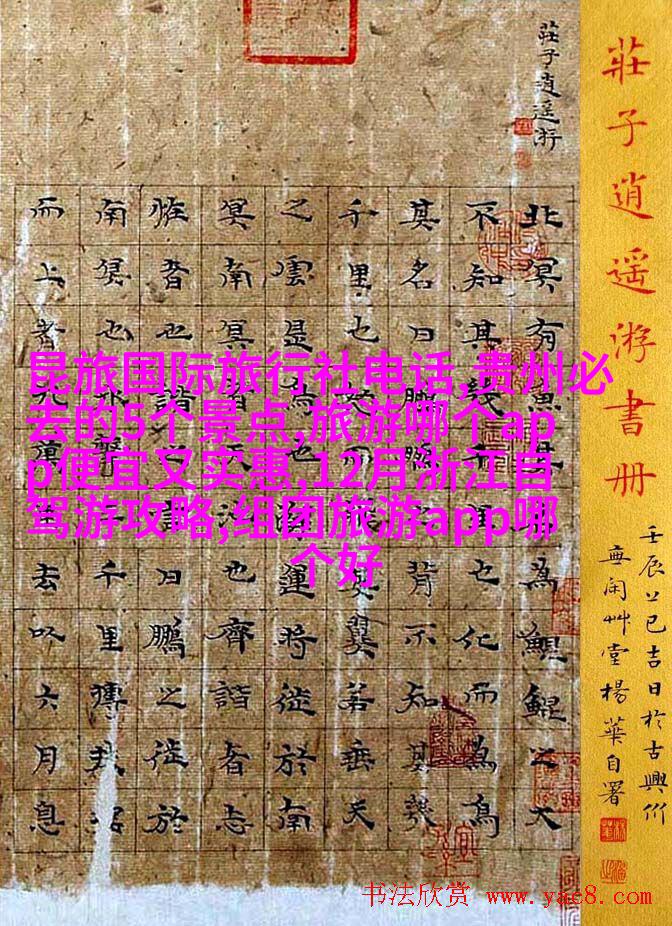 莊子逍遥游書册
壬辰上巳吉日於古興州
無闲艸堂楊華自署
莊子逍遥游
北冥有魚其名為鯤鯤之大
不知其幾千里也化而為鳥
其名曰鵬鵬之背不知其幾
千里也怒而飛其翼若垂天
之雲是鳥也海運將徙於南
冥南冥者天池也齊諧者志
恠者也諧之言曰鵬之徙於
南冥也水擊三千里摶扶搖
而上者九萬里去以六月息
昆旅国际旅行社电话,贵州必
去的5个景点,旅游哪个ap
p便宜又实惠,12月浙江自
驾游攻略,组团旅游app哪
个好
书法欣赏 www.yac8.com